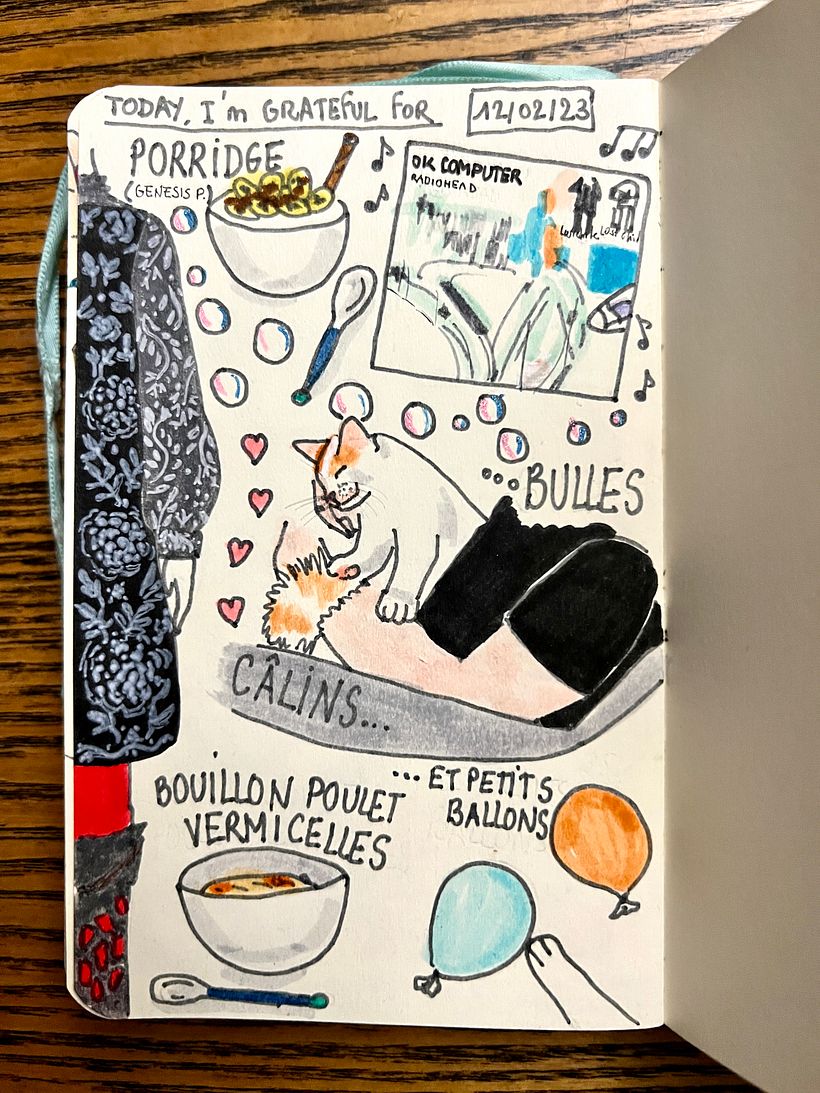 TODAY, I'm GRATEFUL FOR
12/02/23
PORRIDGE
(GENESIS P.)
OK COMPUTER
RADIOHEAD
Lost Child
...BULLES
CÂLINS...
...ET PETITS
BALLONS
BOUILLON POULET
VERMICELLES